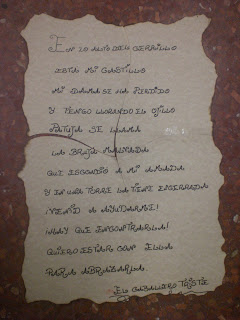 En lo alto del cerrillo
está mi castillo
mi dama se ha perdido
y tengo llorando el ojillo
Patuja se llama
la bruja malvada
que escondió a mi amada
y en una torre la tiene encerrada
¡Venid a ayudarme!
¡Hay que encontrarla!
Quiero estar con ella
para abrazarla
El caballero triste